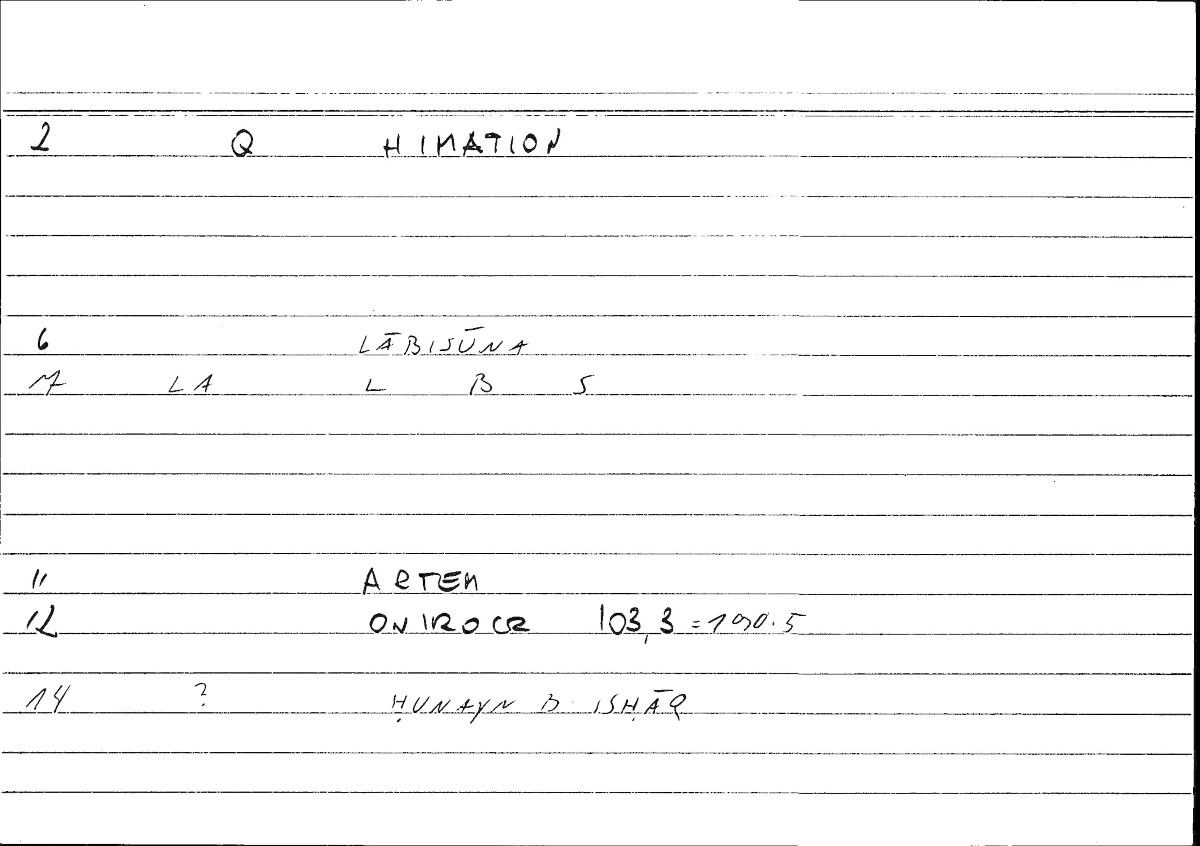 2 Q HIMATION
6 LĀBISŪNA
7 LA L B S
11 ARTEM
12 ONIROCR 103,3 = 190.5
14 ? ḤUNAYN B ISḤĀQ